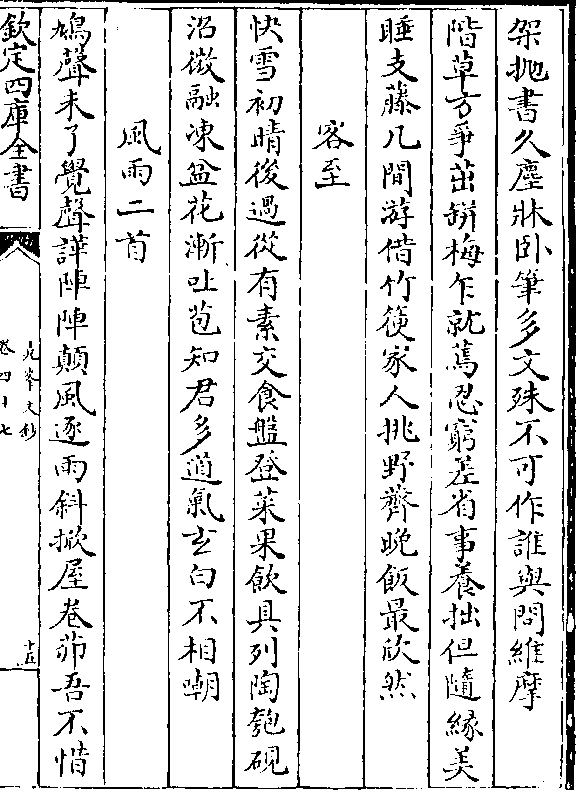 架抛書久塵牀卧筆多文殊不可作誰與問維摩
階草方爭茁缾梅乍就蔫忍窮差省事養拙但隨緣美
睡支藤几閒游借竹筱家人挑野薺晚飯最欣然
客至
快雪初晴後過從有素交食盤登菜果飲具列陶匏硯
沼微融凍盆花漸吐苞知君多道氣玄白不相嘲
風雨二首
鳩聲未了覺聲譁陣陣顛風逐雨斜掀屋卷茆吾不惜
欽定四庫全書
堯峯文鈔
卷四十七
十五